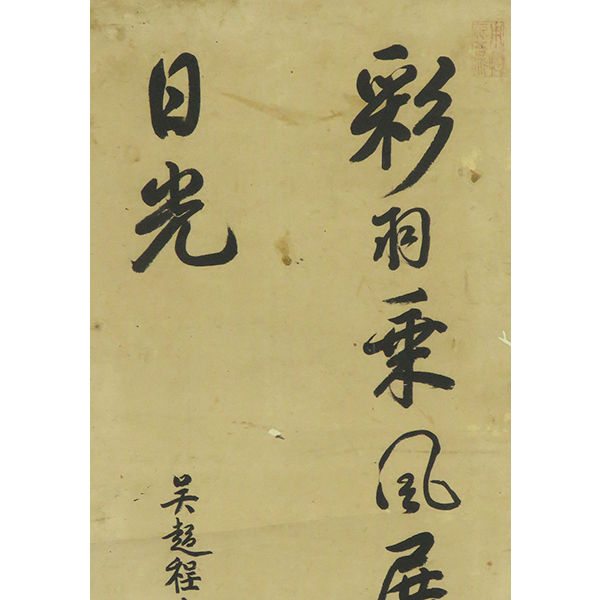 彩羽乗風展
日光
吴超程